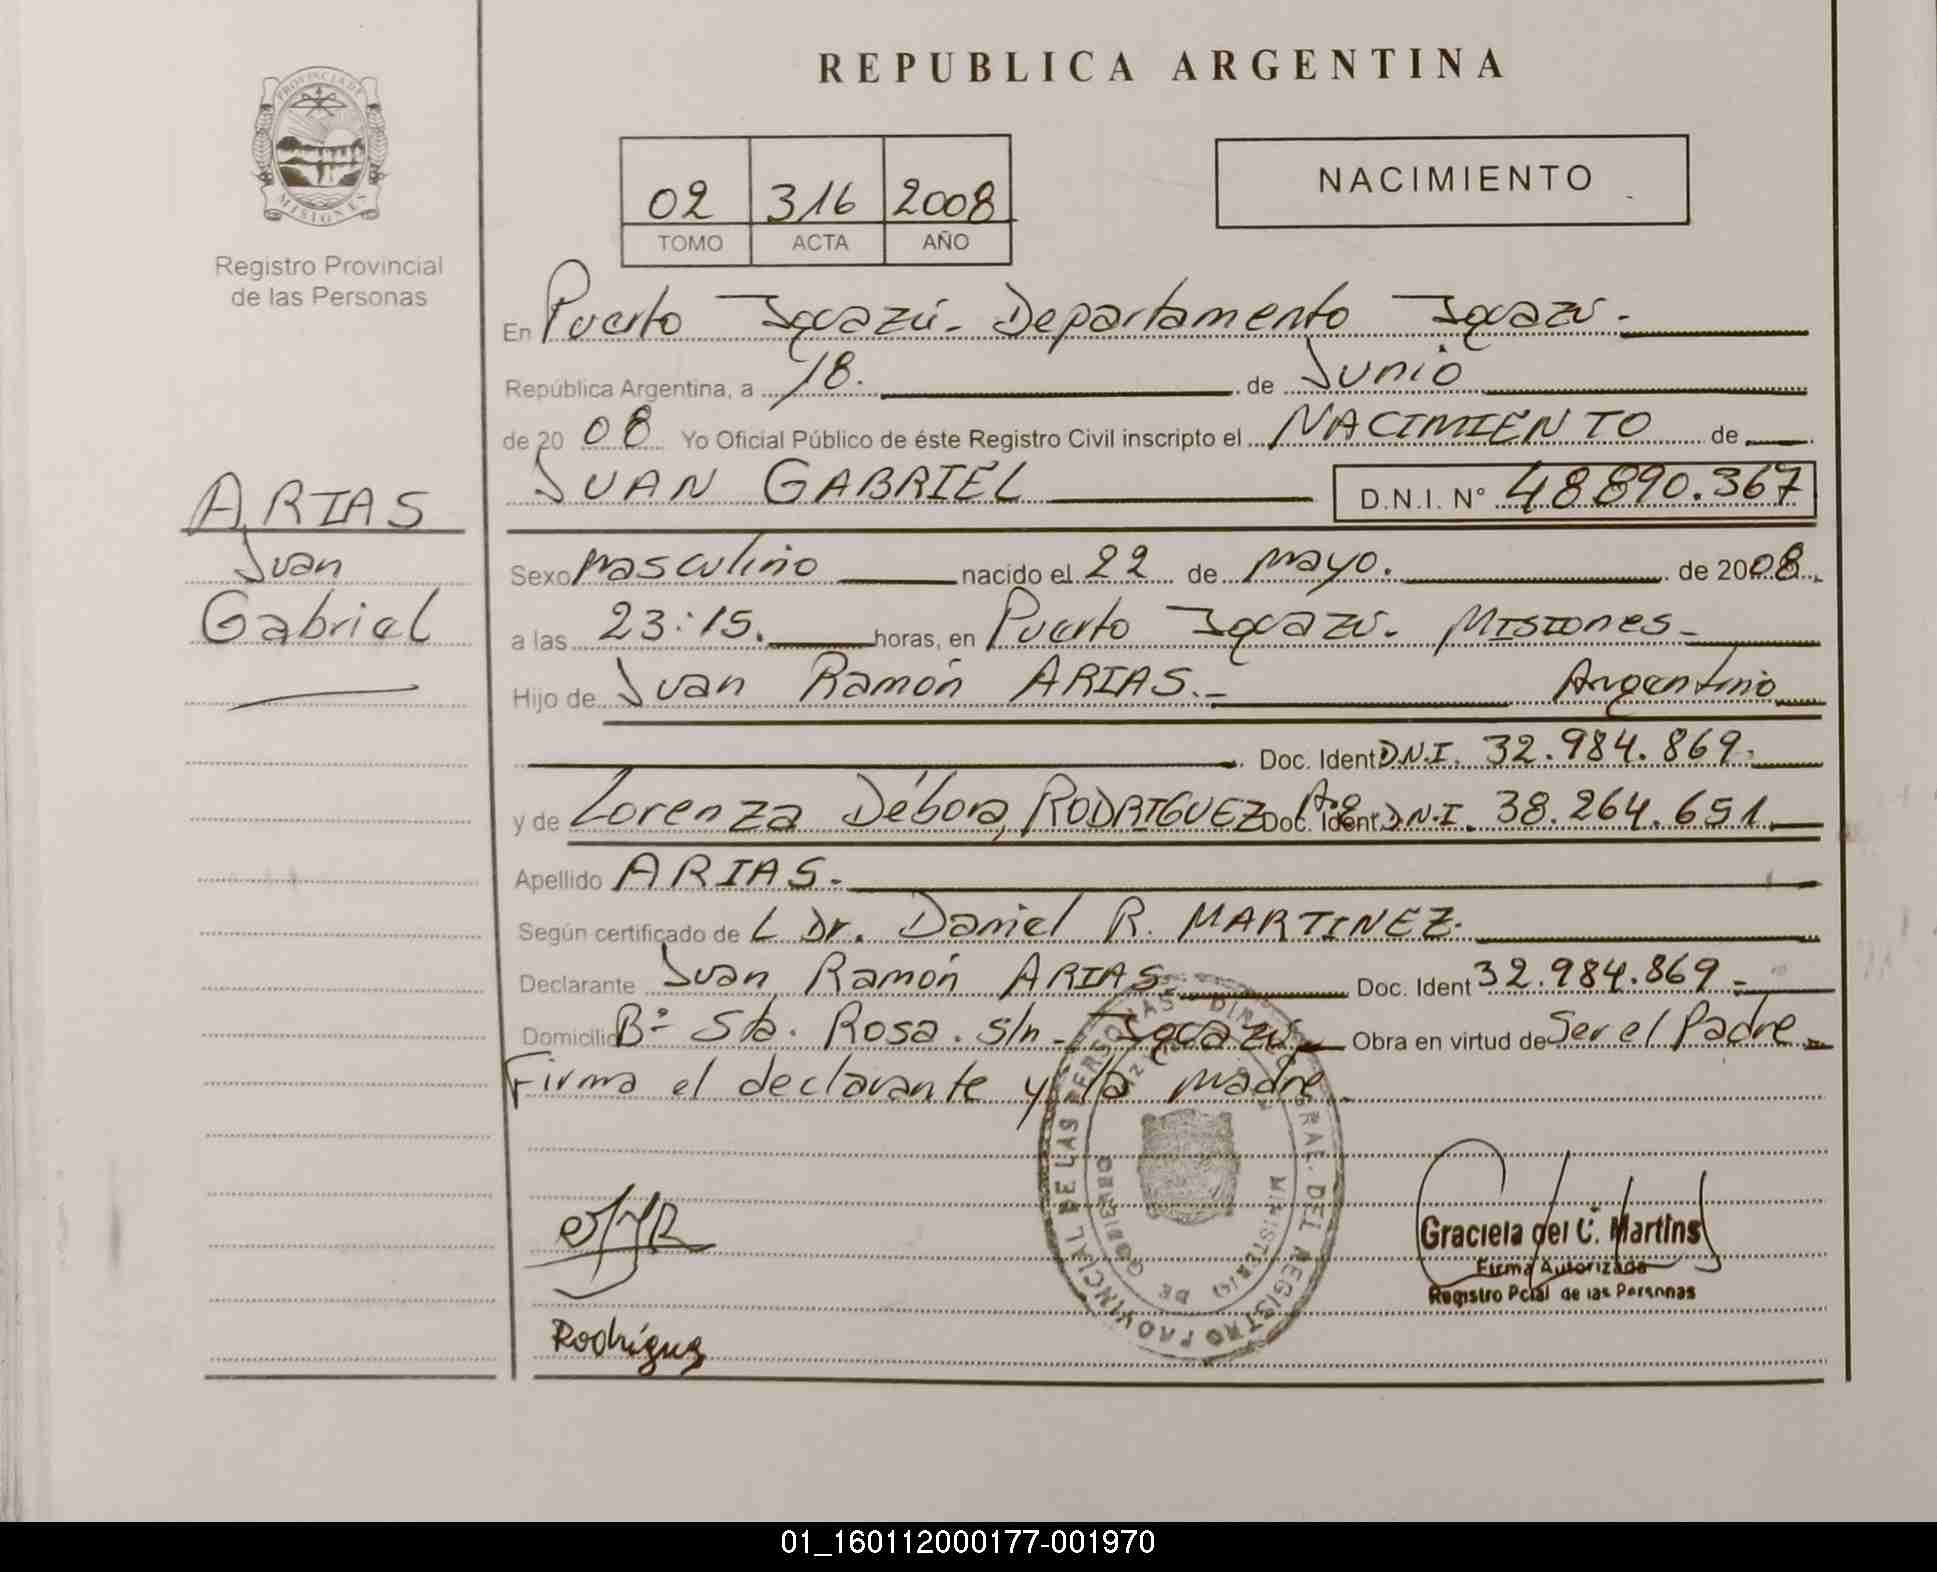 REPUBLICA ARGENTINA
PROVINCIA DE
MISIONES
Registro Provincial
de las Personas
02 316 2008
TOMO ACTA AÑO
NACIMIENTO
En Puerto Iguazú - Departamento Iguazú -
República Argentina, a 18. de Junio
de 2008 Yo Oficial Público de éste Registro Civil inscripto el NACIMIENTO de
JUAN GABRIEL D.N.I. N° 48890.367
ARIAS
Juan
Gabriel
Sexo masculino nacido el 22 de mayo. de 2008.
a las 23:15. horas, en Puerto Iguazú. Misiones -
Hijo de Juan Ramón ARIAS.- Argentino
Doc. Ident D.N.I. 32.984.869.
y de Lorenza Débora RODRIGUEZ Arg Doc. Ident. D.N.I. 38.264.651.
Apellido ARIAS.
Según certificado de L Dr. Daniel R. MARTINEZ.
Declarante Juan Ramón ARIAS. Doc. Ident 32.984.869 -
Domicilio B° Sta. Rosa. s/n - Iguazú - Obra en virtud de Ser el Padre
Firma el declarante y la madre
DIRAL. DEL REGISTRO PROVINCIAL DE LAS PERSONAS
MINISTERIO DE GOBIERNO
Graciela del C. Martins
Firma Autorizada
Registro Pcial de las Personas
Rodriguez
01_160112000177-001970